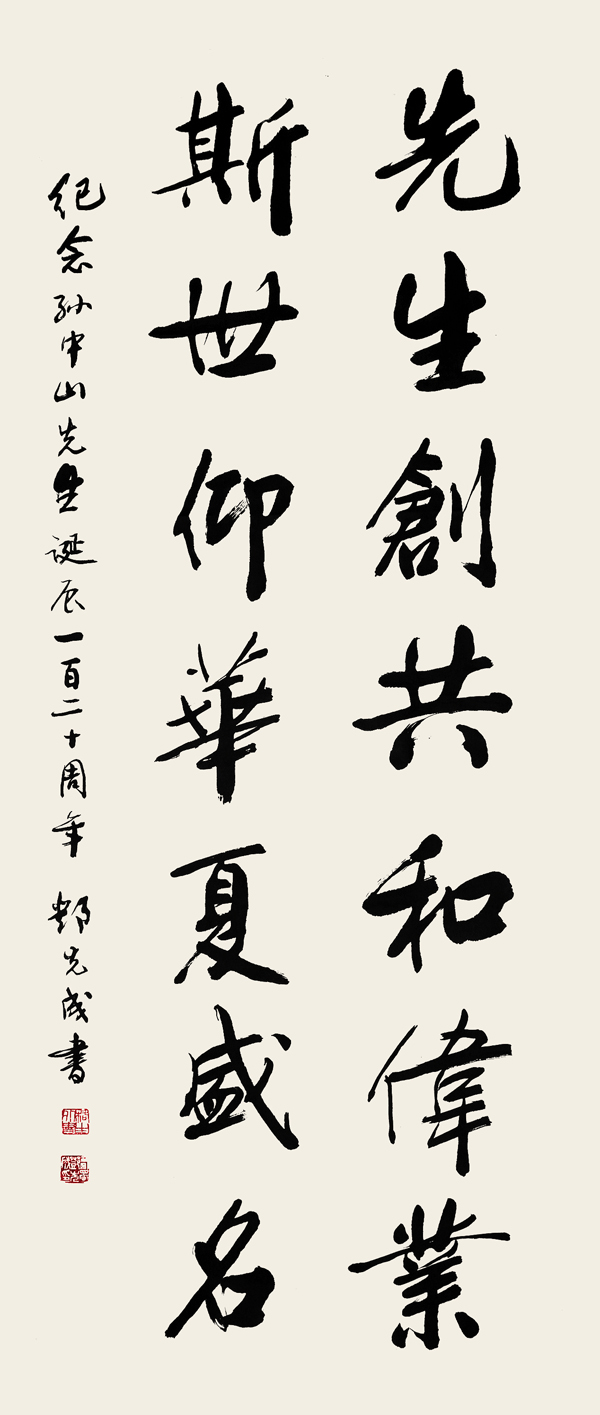 先生創共和偉業
斯世仰華夏盛名
纪念孙中山先生诞辰一百二十周年 鄭先成书